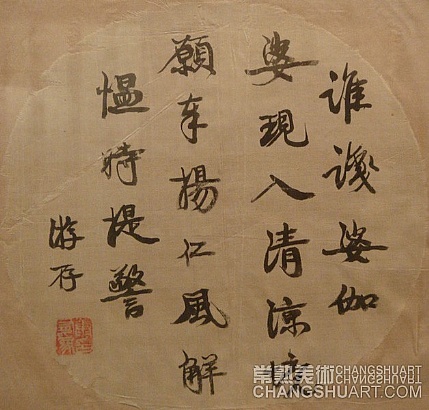 誰識婆伽
婆現入清涼境
願奉揚仁風解
慍時提警
游存
常熟美術CHANGSHUART
CHANGSHUART.COM